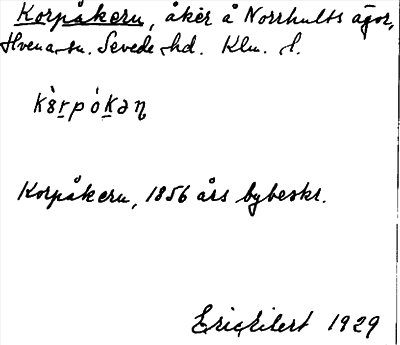 Korpåkern, åker å Norrhults ägor,
Hvena sn. Sevede hd. Klm. l.
Korpåkern, 1856 års bybeskr.
Eric Eilert 1929